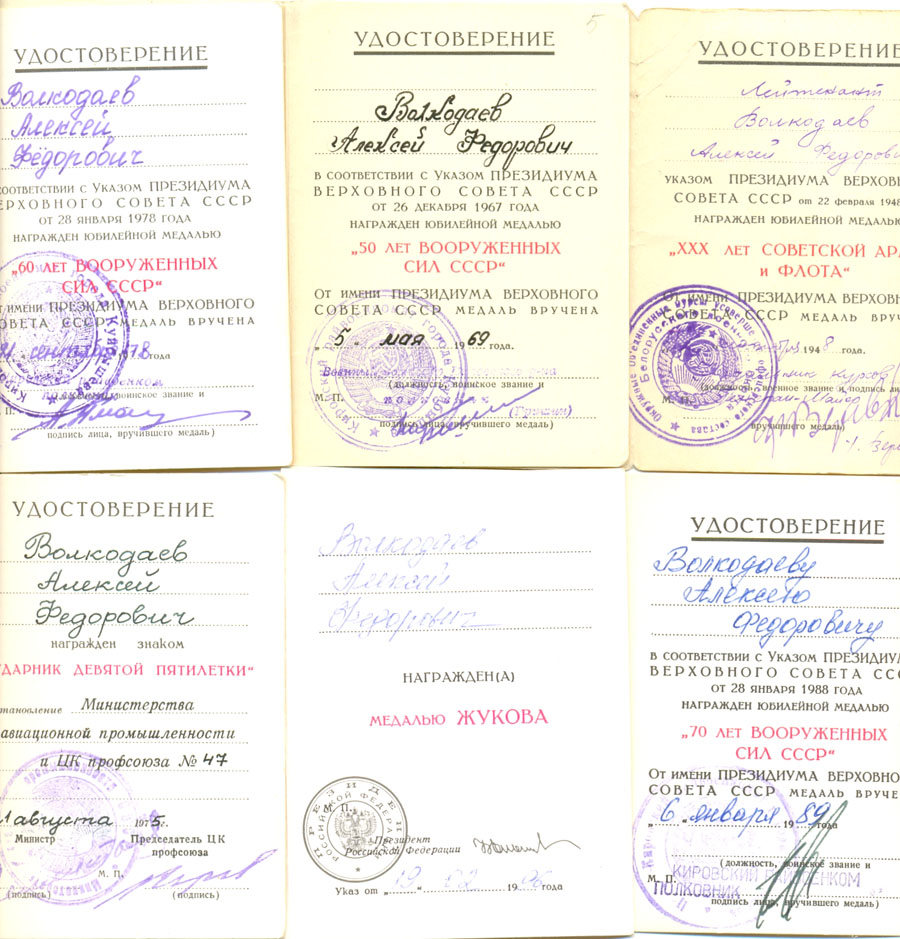 УДОСТОВЕРЕНИЕ
Волкодаев
Алексей
Фёдорович
соответствии с Указом ПРЕЗИДИУМА
ВЕРХОВНОГО СОВЕТА СССР
от 28 января 1978 года
награжден юбилейной медалью
„60 лет ВООРУЖЕННЫХ
СИЛ СССР“
от имени ПРЕЗИДИУМА ВЕРХОВНОГО
СОВЕТА СССР медаль вручена
1978 года
воинское звание и
М. П.
подпись лица, вручившего медаль)
5
УДОСТОВЕРЕНИЕ
Волкодаев
Алексей Федорович
в соответствии с Указом ПРЕЗИДИУМА
ВЕРХОВНОГО СОВЕТА СССР
от 26 декабря 1967 года
награжден юбилейной медалью
„50 лет ВООРУЖЕННЫХ
СИЛ СССР“
От имени ПРЕЗИДИУМА ВЕРХОВНОГО
СОВЕТА СССР медаль вручена
„5“ мая 1969 года.
(должность, воинское звание и
М. П.
подпись лица, вручившего медаль)
УДОСТОВЕРЕНИЕ
Лейтенант
Волкодаев
Алексей Федорови
указом ПРЕЗИДИУМА ВЕРХОВН
СОВЕТА СССР от 22 февраля 1948
награжден юбилейной медалью
„XXX лет СОВЕТСКОЙ АР
и ФЛОТА“
От имени ПРЕЗИДИУМА ВЕРХОВН
СОВЕТА СССР медаль вруч
1948 года.
(должность, военное звание и подпись ли
М. П.
вручившего медаль)
УДОСТОВЕРЕНИЕ
Волкодаев
Алексей
Федорович
награжден знаком
УДАРНИК ДЕВЯТОЙ ПЯТИЛЕТКИ“
становление Министерства
авиационной промышленности
и ЦК профсоюза № 47
августа 1975.
Министр Председатель ЦК
профсоюза
М. П.
(подпись) (подпись)
Волкодаев
Алексей
Федорович
НАГРАЖДЕН(А)
МЕДАЛЬЮ ЖУКОВА
М. П.
Президент
Российской Федерации
Указ от „19“ 02 1996 года
УДОСТОВЕРЕНИЕ
Волкодаеву
Алексею
Федоровичу
в соответствии с Указом ПРЕЗИДИУМ
ВЕРХОВНОГО СОВЕТА ССС
от 28 января 1988 года
награжден юбилейной медалью
„70 лет ВООРУЖЕННЫХ
СИЛ СССР“
От имени ПРЕЗИДИУМА ВЕРХОВНО
СОВЕТА СССР медаль вруче
„6“ января 1989 года
(должность, воинское звание и
М. П. КИРОВСКИЙ РАЙВОЕНКОМ
ПОЛКОВНИК
подпись лица, вручившего медаль)